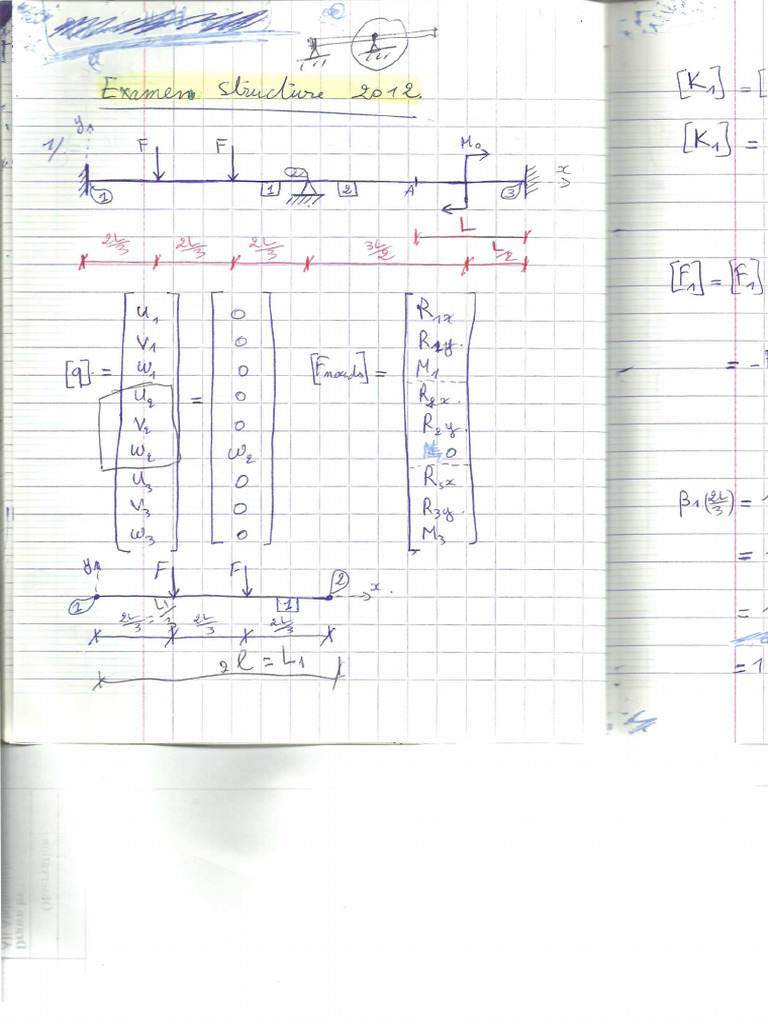 Examen structure 2012.
1/ y F F M₀ x
1 1 2 2 A 3
L
2L/3 2L/3 2L/3 3L/2 L/2
[q] = [u₁ v₁ w₁ u₂ v₂ w₂ u₃ v₃ w₃] = [0 0 0 0 0 w₂ 0 0 0] [Fnoeuds] = [R₁x R₁y. M₁ R₂x. R₂y. 0 R₃x R₃y. M₃]
y F F 2
1 1 x
2L/3 = L₁/3 2L/3 2L/3
2L = L₁
[K₁] = [
[K₁] =
[F₁] = [F₁]
= -
β1(2L/3) = 1
= 1
= 1
= 1
Observation
Drawn by